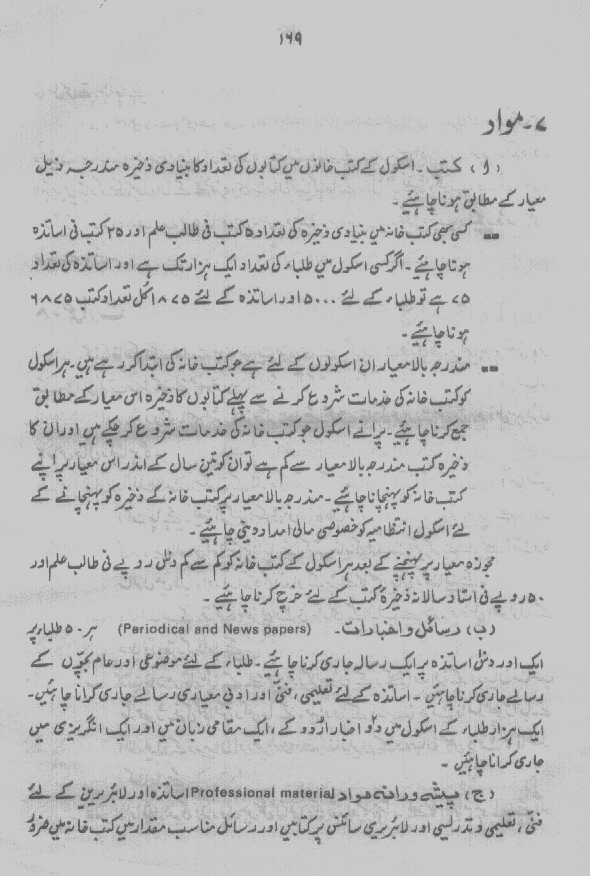 ۱۶۹
۷۔ مواد
(ا) کتب ۔ اسکول کے کتب خانوں میں کتابوں کی تعداد کا بنیادی ذخیرہ مندرجہ ذیل
معیار کے مطابق ہونا چاہئیے ۔
کسی بھی کتب خانہ میں بنیادی ذخیرہ کی تعداد ۵ کتب فی طالب علم اور ۲۵ کتب فی اساتذہ
ہونا چاہئیے ۔ اگر کسی اسکول میں طلباء کی تعداد ایک ہزار تک ہے اور اساتذہ کی تعداد
۷۵ ہے تو طلباء کے لئے ۵۰۰۰ اور اساتذہ کے لئے ۱۸۷۵ کُل تعداد کتب ۶۸۷۵
ہونا چاہئیے ۔
مندرجہ بالا معیار ان اسکولوں کے لئے ہے جو کتب خانہ کی ابتدا کر رہے ہیں ۔ ہر اسکول
کو کتب خانہ کی خدمات شروع کرنے سے پہلے کتابوں کا ذخیرہ اس معیار کے مطابق
جمع کرنا چاہئیے ۔ پرانے اسکول جو کتب خانہ کی خدمات شروع کر چکے ہیں اور ان کا
ذخیرہ کتب مندرجہ بالا معیار سے کم ہے تو ان کو تین سال کے اندر اس معیار پر اپنے
کتب خانہ کو پہنچانا چاہئیے ۔ مندرجہ بالا معیار پر کتب خانہ کے ذخیرہ کو پہنچانے کے
لئے اسکول انتظامیہ کو خصوصی مالی امداد دینی چاہئیے ۔
مجوزہ معیار پر پہنچنے کے بعد ہر اسکول کے کتب خانہ کو کم سے کم دس روپے فی طالب علم اور
۵۰ روپے فی استاد سالانہ ذخیرۂ کتب کے لئے خرچ کرنا چاہئیے ۔
(ب) رسائل و اخبارات ۔ (Periodical and News papers) ہر ۵۰ طلباء پر
ایک اور دس اساتذہ پر ایک رسالہ جاری کرنا چاہئیے ۔ طلباء کے لئے موضوعی اور عام بچّوں کے
رسالے جاری کرنا چاہئیں ۔ اساتذہ کے لئے تعلیمی، فنّی اور ادبی معیاری رسالے جاری کرانا چاہئیں ۔
ایک ہزار طلباء کے اسکول میں دو اخبار اُردو کے، ایک مقامی زبان میں اور ایک انگریزی میں
جاری کرانا چاہئیں ۔
(ج) پیشہ ورانہ مواد Professional material اساتذہ اور لائبریرین کے لئے
فنّی، تعلیمی و تدریسی اور لائبریری سائنس پر کتابیں اور رسائل مناسب مقدار میں کتب خانہ میں